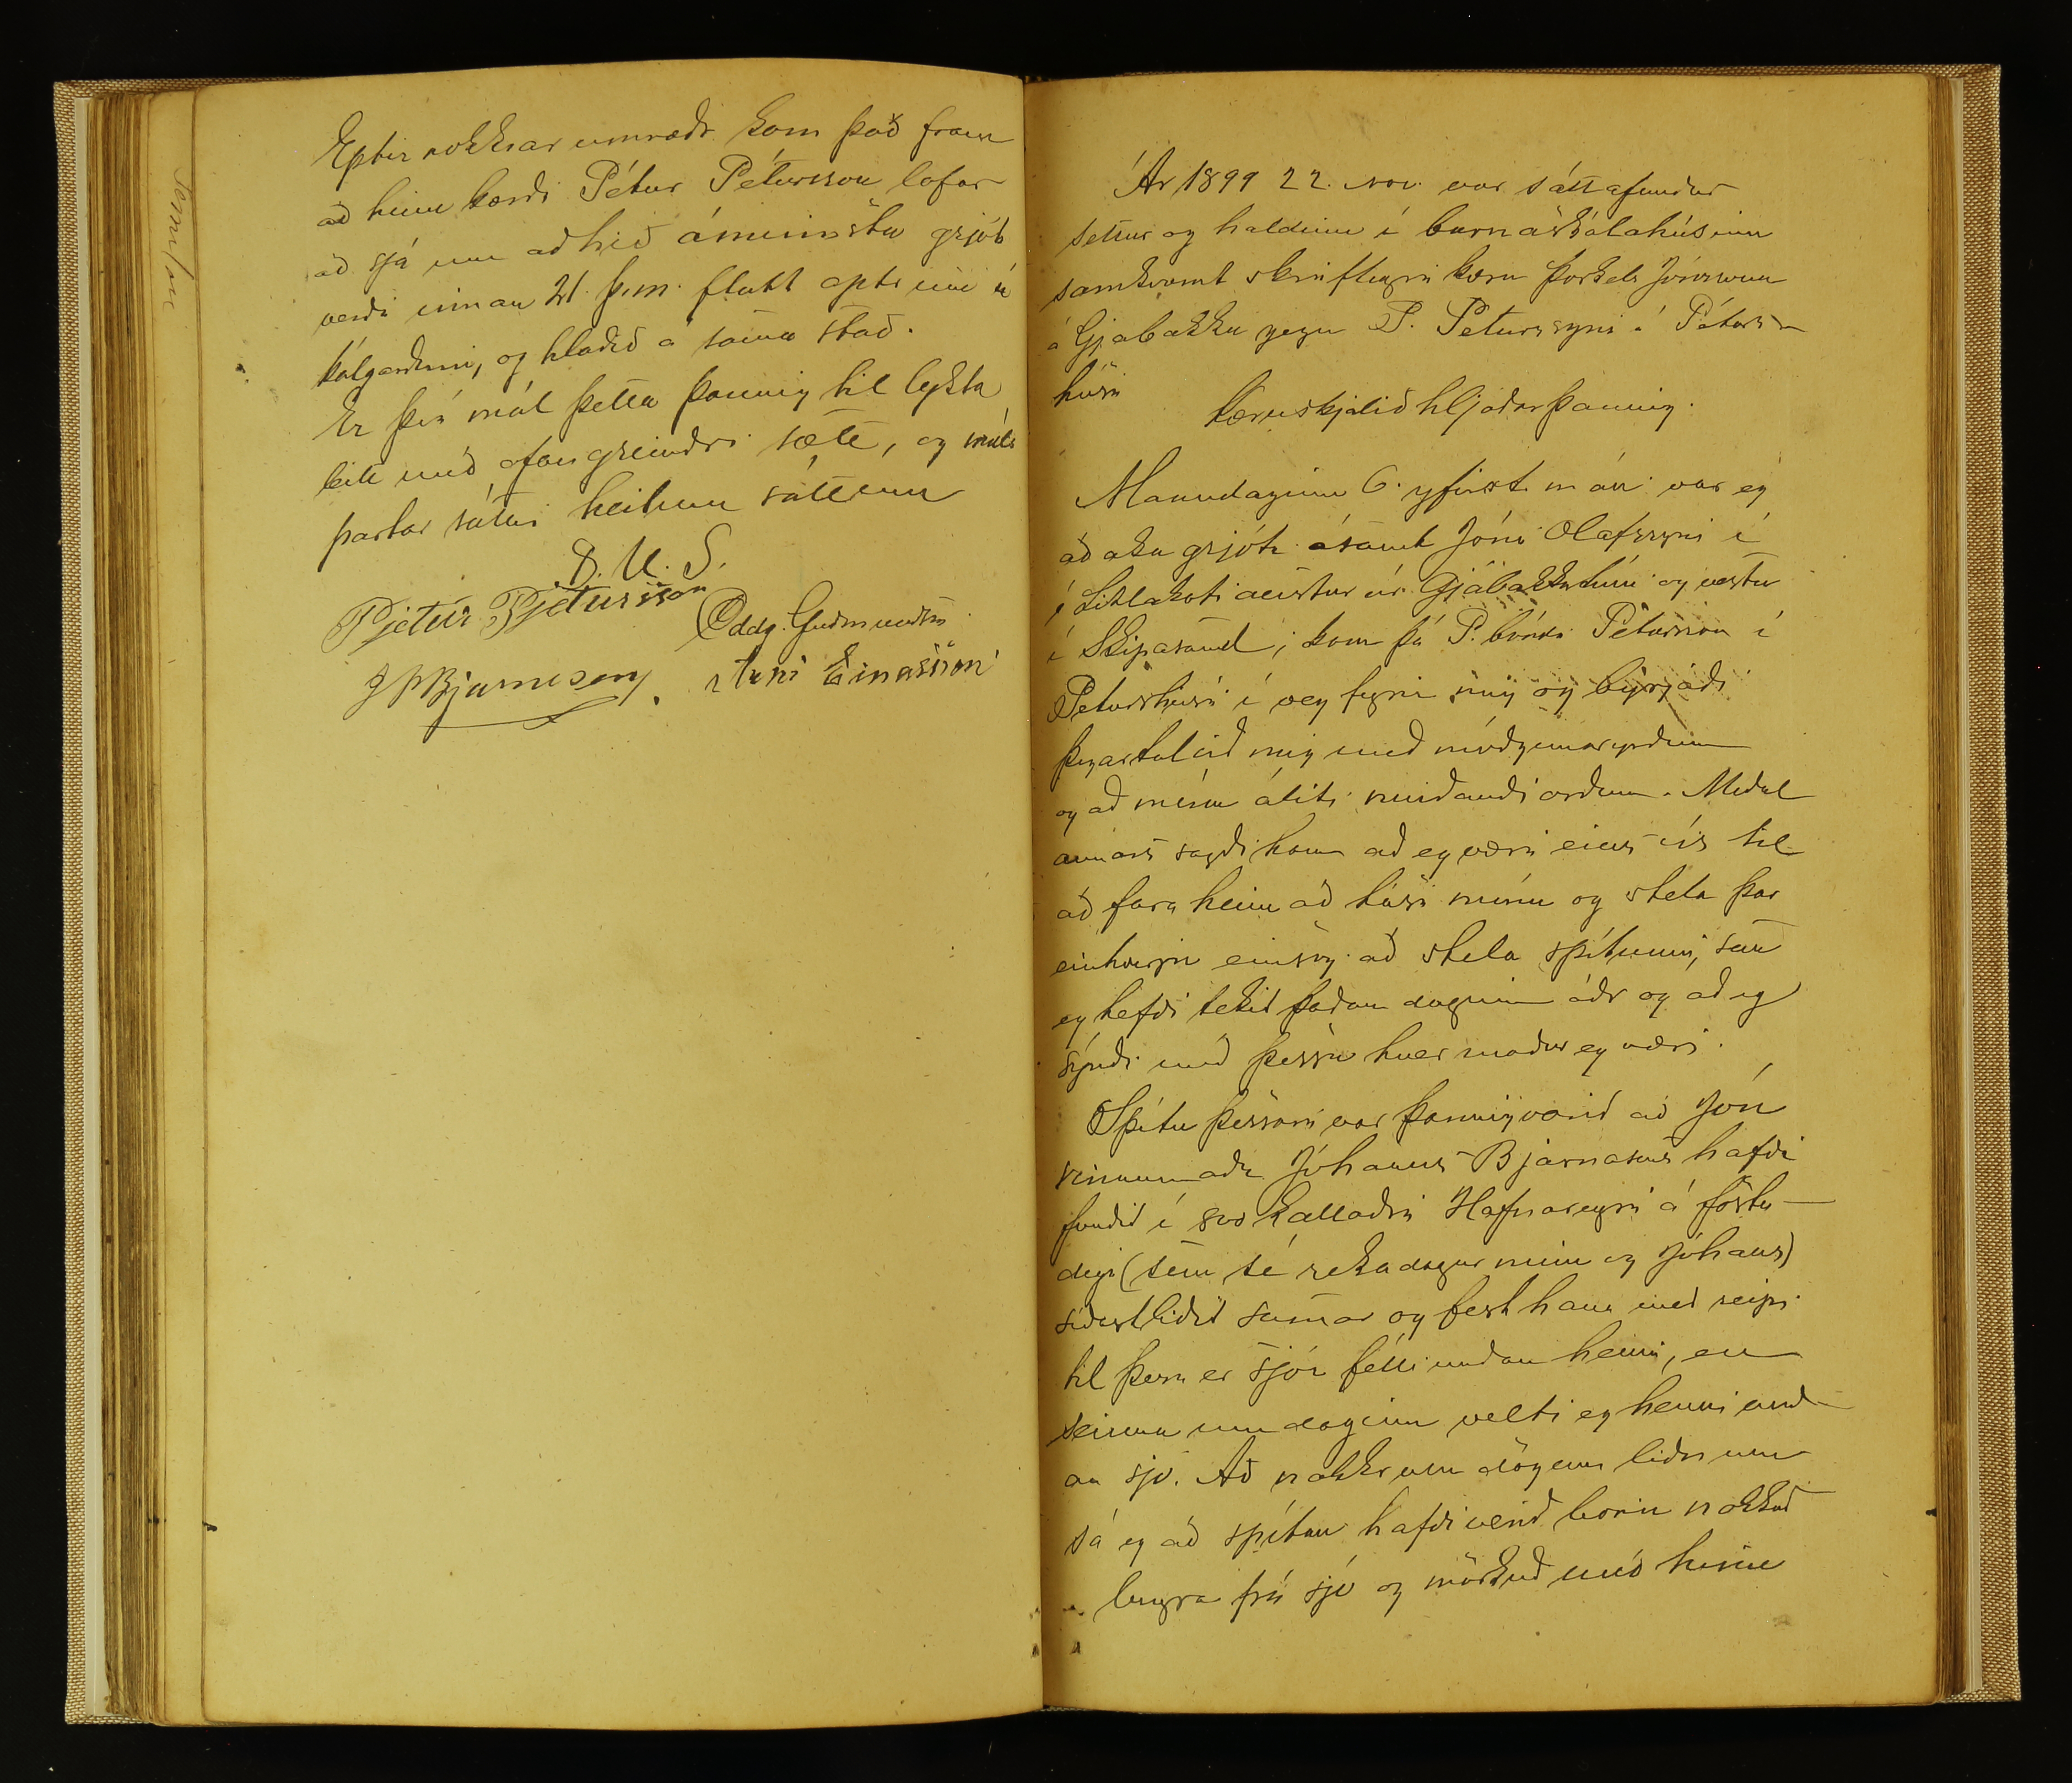 Eptir nokkrar umræðr kom það fram
að hinn kærði Pétur Pétursson lofar
að sjá um að hið áminnsta grjót
verði innan 21. þ.m. flutt aptr inn í
kálgarðinn, og hlaðið á sama stað.
Er því mál þetta þannig til lykta
leitt með ofangreindri sætt, og máls
partar sátu heilum sáttum
D. U. S.
Pjetur Pjetursson
Oddg. Guðmundsen
J P Bjarnasen
Árni Einarsson
Ár 1899 22. nov. var sáttafundur
settur og haldinn í barnaskólahúsinu
samkvæmt skriflegri kæru Þorkels Jónssonar
á Gjábakka gegn P. Péturssyni í Péturs-
húsi
Kæruskjalið hljóðar þannig.
Mánudaginn 6. yfirst. mán. var eg
að aka grjóti ásamt Jóni Olafssyni í
í Litlakoti austur úr Gjábakkatúni og vestur
í Skipasand; kom þá P. bóndi Pétursson í
Péturshúsi í veg fyrir mig og byrjaði
þegar tal við mig með móðgunaryrðum
og að mínu áliti meiðandi orðum. Meðal
annars sagði hann að eg væri eins vís til
að fara heim að húsi mínu og stela þar
einhverju eins og að stela spítunni, sem
eg hefði tekið þaðan daginn áðr og að eg
sýndi með þessu hver maður eg væri.
Spítu þessari var þannig varið að Jón
vinnumaðr Jóhanns Bjarnasens hafði
fundið í svo kallaðri Hafnareyri á föstu-
degi (sem sé rekadagur minn og Jóhans)
síðastliðið sumar og fest hana með reipi
til þess er sjór félli undan henni, en
seinna um daginn velti eg henni und-
an sjó. Að nokkrum dögum liðnum
sá eg að spítan hafði verið borin nokkuð
lengra frá sjó og mörkuð með hennar